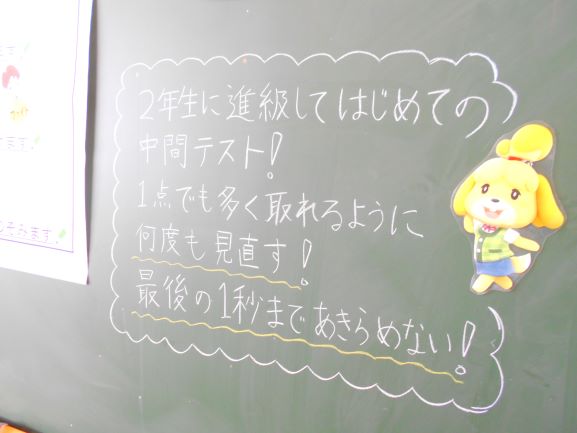 2年生に進級してはじめての
中間テスト!
1点でも多く取れるように
何度も見直す!
最後の1秒まであきらめない!
ます
ます。
みます。